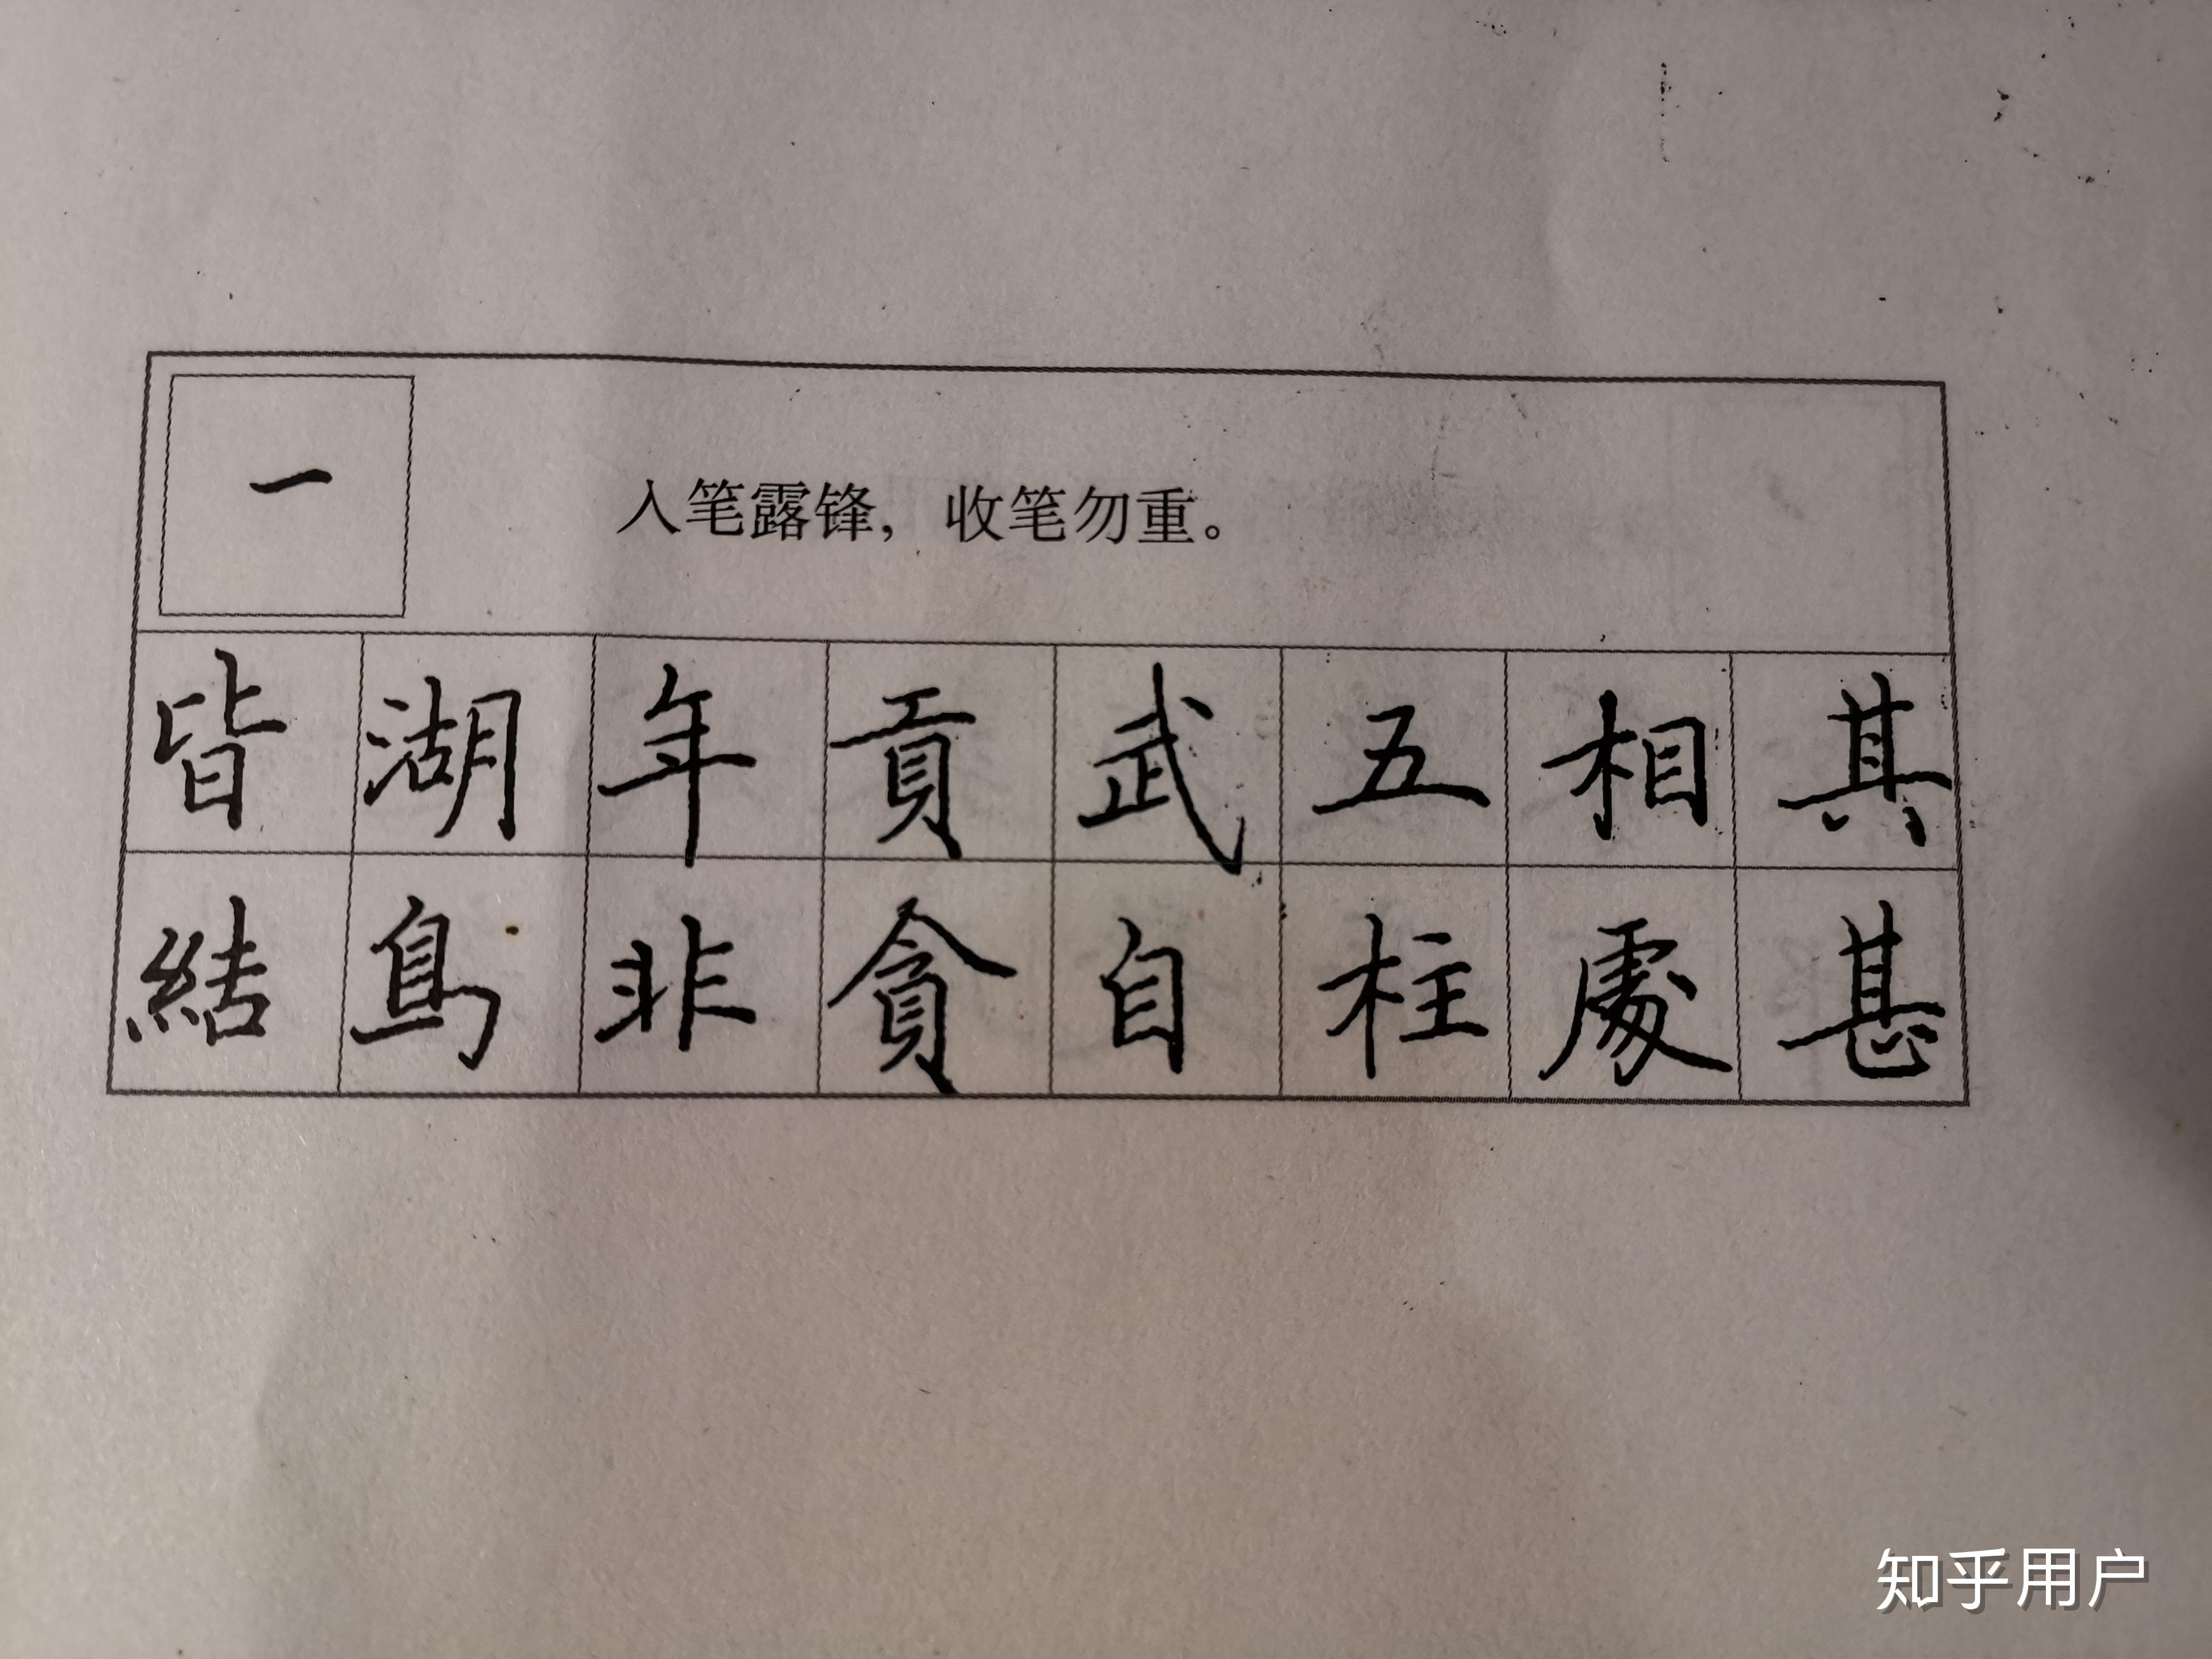 一
入笔露锋，收笔勿重。
皆 湖 年 貢 武 五 相 其
結 島 非 貪 自 柱 處 甚
知乎用户